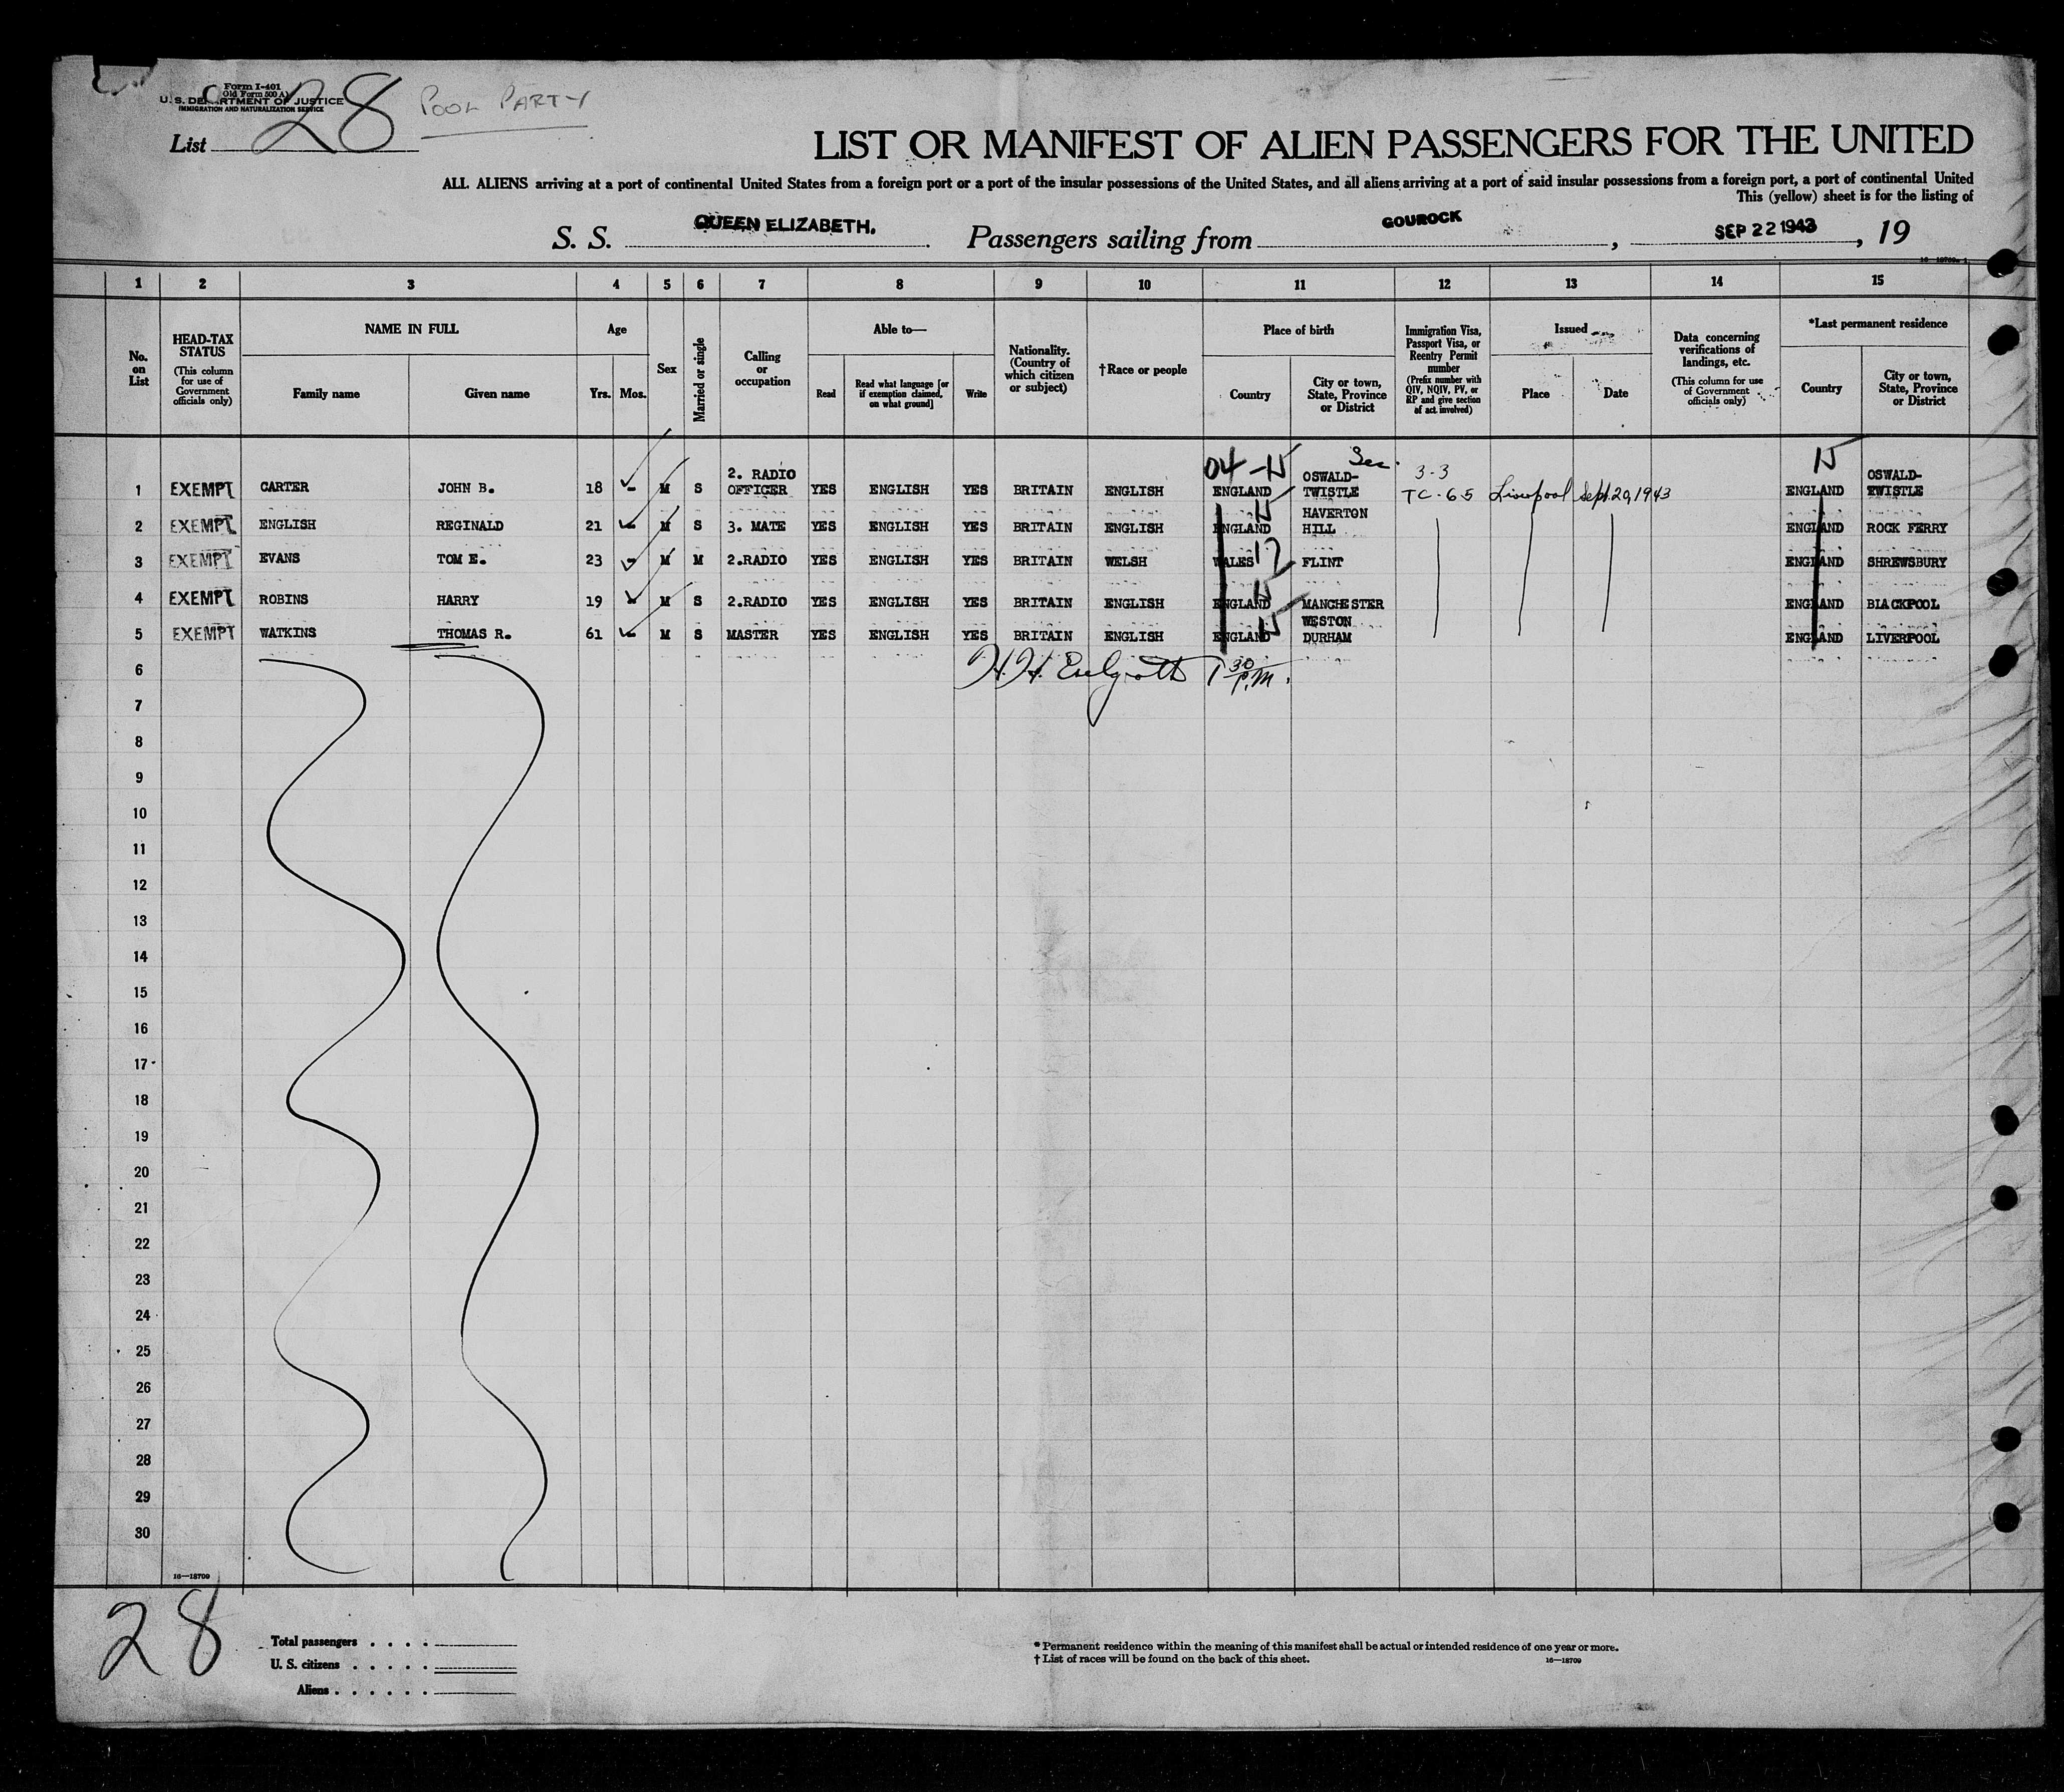 Form I-401
(Old Form 500 A)
U. S. DEPARTMENT OF JUSTICE
IMMIGRATION AND NATURALIZATION SERVICE
List 28 POOL PARTY
LIST OR MANIFEST OF ALIEN PASSENGERS FOR THE UNITED
ALL ALIENS arriving at a port of continental United States from a foreign port or a port of the insular possessions of the United States, and all aliens arriving at a port of said insular possessions from a foreign port, a port of continental United
This (yellow) sheet is for the listing of
S. S. QUEEN ELIZABETH. Passengers sailing from GOUROCK, SEP 22 1943, 19
1 2 3 4 5 6 7 8 9 10 11 12 13 14 15
No. on List
HEAD-TAX STATUS (This column for use of Government officials only)
NAME IN FULL Family name Given name
Age Yrs. Mos.
Sex
Married or single
Calling or occupation
Able to— Read Read what language [or if exemption claimed, on what ground] Write
Nationality. (Country of which citizen or subject)
†Race or people
Place of birth Country City or town, State, Province or District
Immigration Visa, Passport Visa, or Reentry Permit number (Prefix number with QIV, NQIV, PV, or RP and give section of act involved)
Issued Place Date
Data concerning verifications of landings, etc. (This column for use of Government officials only)
*Last permanent residence Country City or town, State, Province or District
04-15 Sec. 3-3 15
1 EXEMPT CARTER JOHN B. 18 - M S 2. RADIO OFFICER YES ENGLISH YES BRITAIN ENGLISH ENGLAND OSWALD-TWISTLE TC-65 Liverpool Sept. 20, 1943 ENGLAND OSWALD-TWISTLE
2 EXEMPT ENGLISH REGINALD 21 - M S 3. MATE YES ENGLISH YES BRITAIN ENGLISH ENGLAND 15 HAVERTON HILL ENGLAND ROCK FERRY
3 EXEMPT EVANS TOM E. 23 - M M 2.RADIO YES ENGLISH YES BRITAIN WELSH WALES 17 FLINT ENGLAND SHREWSBURY
4 EXEMPT ROBINS HARRY 19 - M S 2.RADIO YES ENGLISH YES BRITAIN ENGLISH ENGLAND 15 MANCHESTER ENGLAND BLACKPOOL
5 EXEMPT WATKINS THOMAS R. 61 - M S MASTER YES ENGLISH YES BRITAIN ENGLISH ENGLAND 15 WESTON DURHAM ENGLAND LIVERPOOL
6 H. H. 1 30 P.M.
7
8
9
10
11
12
13
14
15
16
17
18
19
20
21
22
23
24
25
26
27
28
29
30
16—18709
28
Total passengers
U. S. citizens
Aliens
* Permanent residence within the meaning of this manifest shall be actual or intended residence of one year or more.
† List of races will be found on the back of this sheet. 16—18709